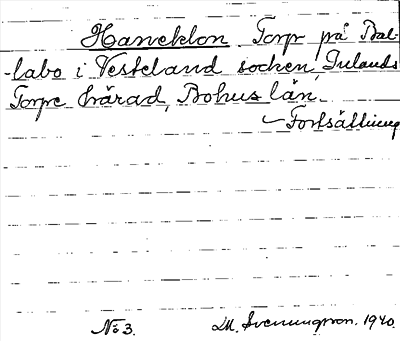 Haneklon Torp på Bal-
-labo i Vesteland socken, Inlands
Torpe härad, Bohus län.
Fortsättning
No 3. M. Svenungsson. 1940.